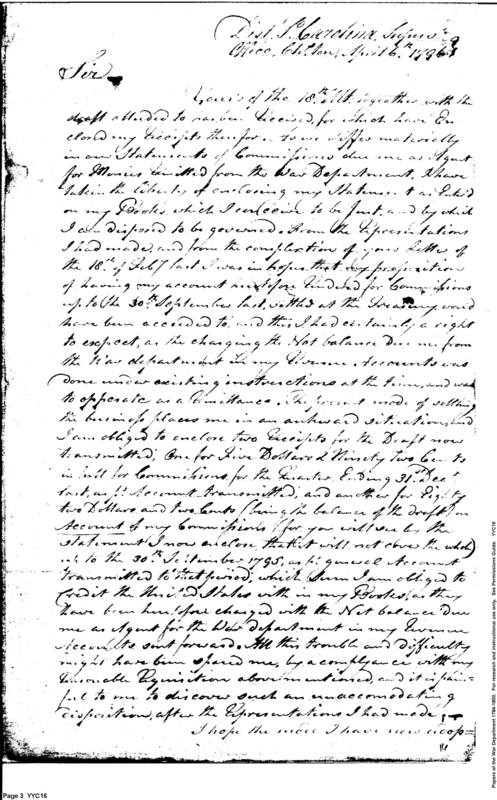 Dist. So. Carolina, Superv.
Office, Chs.ton, April 6th. 1796
Sir
Yours of the 18th. Ult. together with the
draft alluded to has been received, for which have En
closed my receipts therefor. As we differ materially
in our Statements of Commissions due me as Agent
for Monies remitted from the War Department, I have
taken the liberty of enclosing my Statement as Enter'd
on my Books which I conceive to be Just, and by which
I am disposed to be governed. From the representations
I had made, and from the complection of your Letter of
the 18th. of Feby last, I was in hopes that my proposition
of having my account heretofore rendered for Commissions
up to the 30th September last, settled at the Treasury would
have been acceeded to, and this I had certainly a right
to expect, as the charging the Net balance Due me from
the War department in my Revenue Accounts was
done under existing instructions at the time, and was
to opperate as a remittance. The present mode of settling
the business places me in an awkward situation, and
I am obliged to enclose two Receipts for the Draft now
transmitted; One for Five Dollars & Ninety two Cents
in full for Commissions, for the Quarter Ending 31st. Decr.
last, as pr. Account transmitted; and another for Eighty
two Dollars and two Cents (being the balance of the draft) on
Account of my Commissions (for you will see by the
statement I now enclose that it will not cover the whole)
up to the 30th September 1795, as pr. general Account
transmitted to that period, which sum I am obliged to
credit the United States with in my Books, as they
have been heretofore charged with the Net balance Due
me as Agent for the War department in my Revenue
Accounts sent forward. All this trouble and difficulty
might have been spared me, by a complyance with my
reasonable requisition above mentioned, and it is pain-
ful to me to discover such an unaccomodating
disposition, after the representations I had made.
I hope the mode I have now adop=
Page 3 YYC16
Papers of the War Department 1784-1800. For research and instructional use only. See Permissions Guide. YYC16